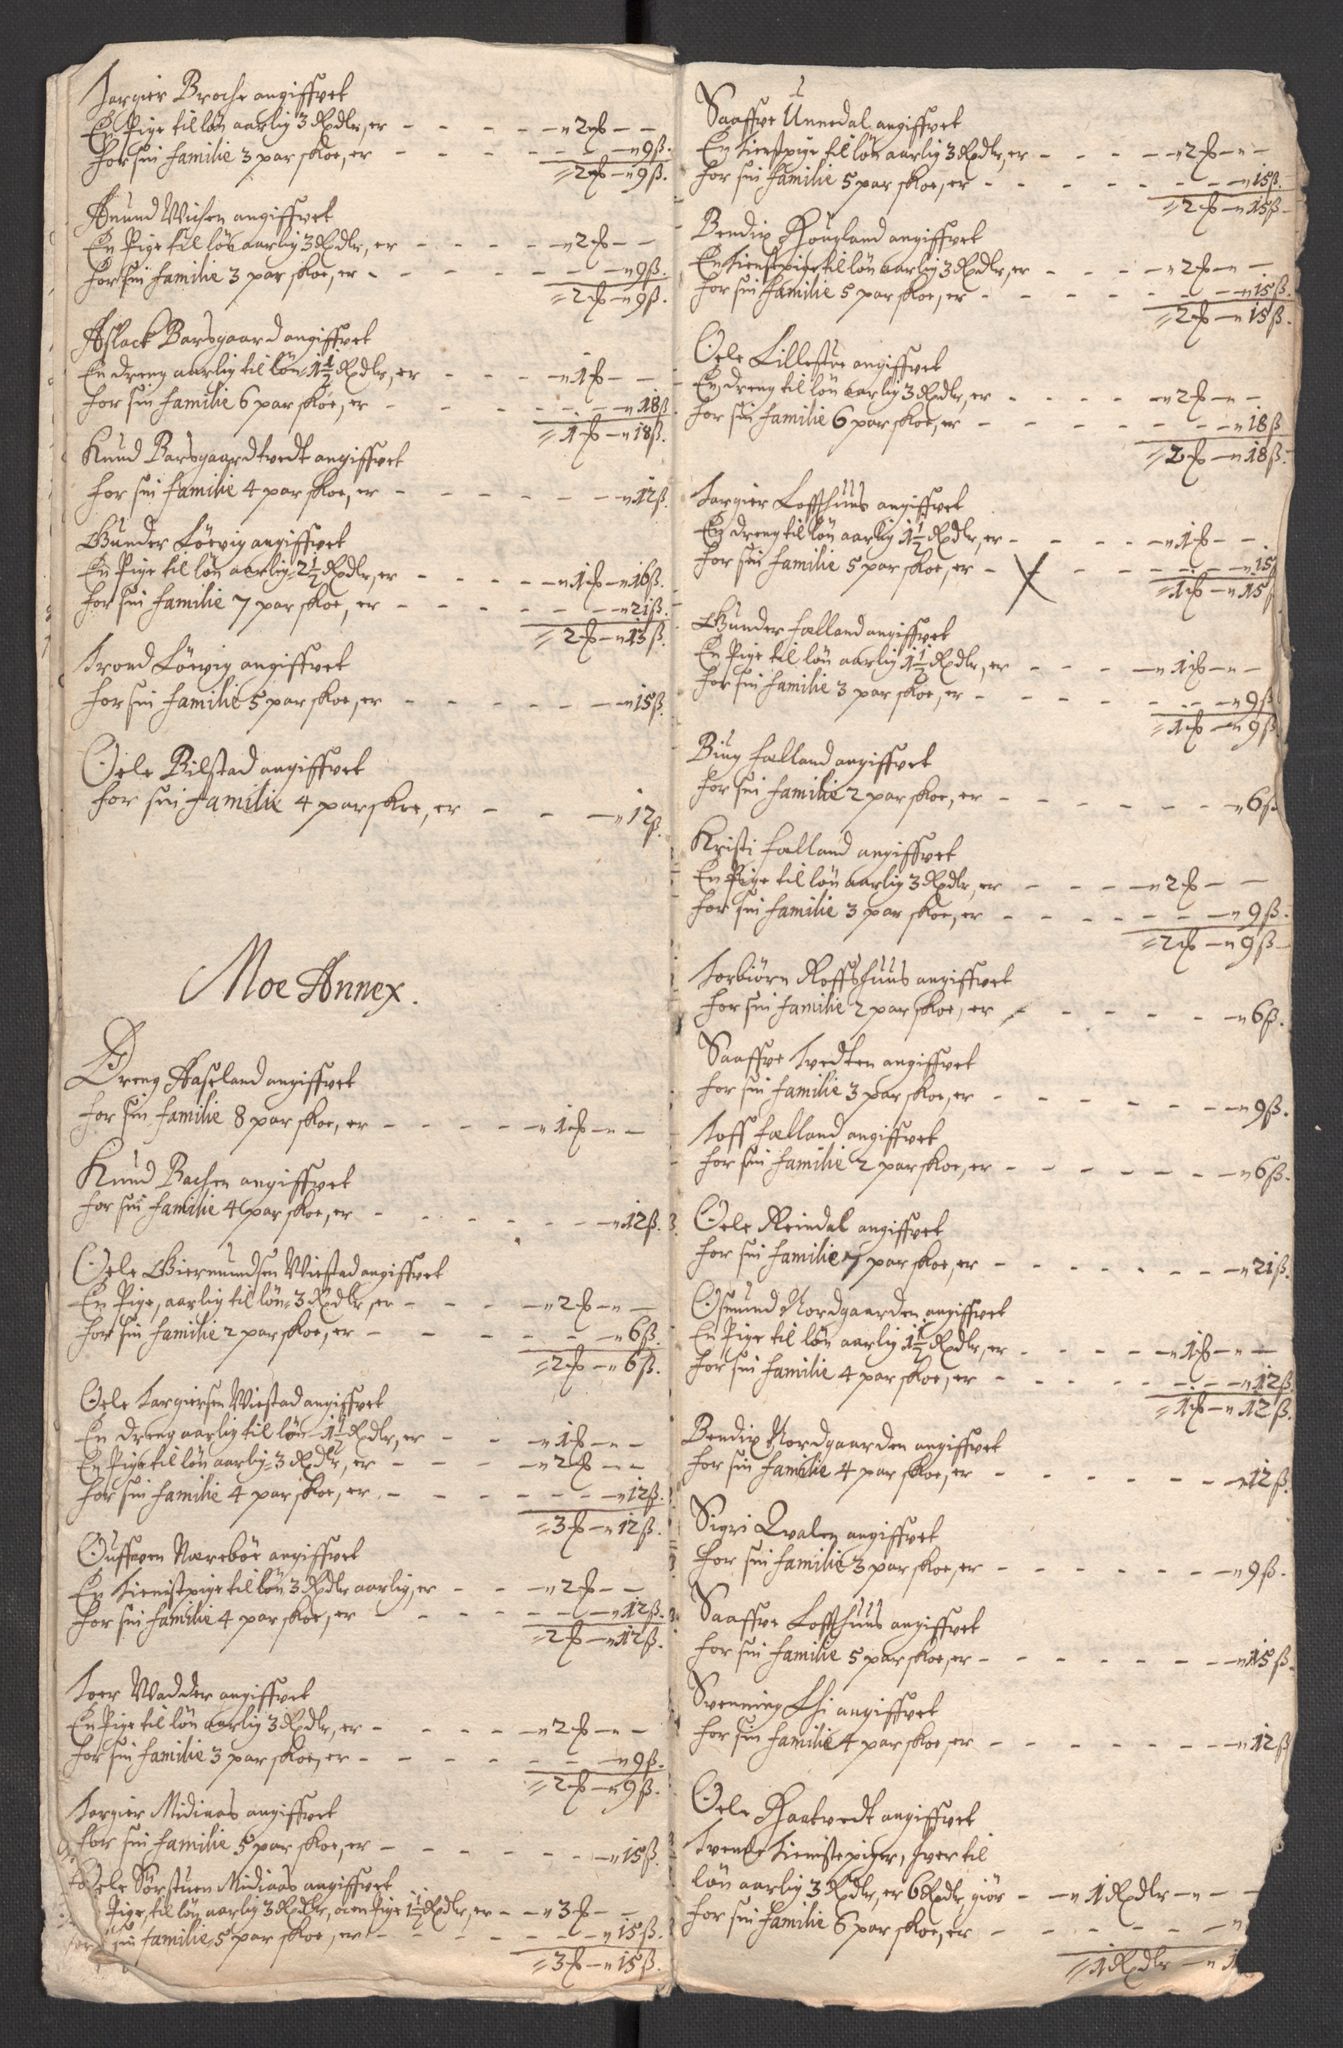 Targier Broche angiffvet
En Pige til løn aarlig 3 Rdlr, er - - - - - „ 2 ℔ - -
for sin familie 3 par skoe, er - - - - - - - „ 9 ß.
= 2 ℔ - „ 9 ß.
Anund Vichen angiffvet
En Pige til løn aarlig 3 Rdlr, er - - - - „ 2 ℔ - -
for sin familie 3 par skoe, er - - - - - - - „ 9 ß.
= 2 ℔ - „ 9 ß.
Aslack Barsgaard angiffvet
En dreng aarlig til løn 1½ Rdlr, er - - - „ 1 ℔ - -
for sin familie 6 par skoe, er - - - - - - „ 18 ß
= 1 ℔ - „ 18 ß.
Knud Barsgaardtvedt angiffvet
for sin familie 4 par skoe, er - - - - - - - „ 12 ß.
Gunder Löevig angiffvet
En Pige til løn aarlig 2½ Rdlr, er - - - - - „ 1 ℔ - „ 16 ß.
for sin familie 7 par skoe, er - - - - - - - „ 21 ß.
= 2 ℔ - „ 13 ß.
Trond Löevig angiffvet
for sin familie 5 par skoe, er - - - - - - - „ 15 ß.
Oele Bilstad angiffvet
for sin familie 4 par skoe, er - - - - „ 12 ß.
Moe Annex.
Dreng Aaseland angiffvet
for sin familie 8 par skoe, er - - - - - „ 1 ℔ - „ -
Knud Bachen angiffvet
for sin familie 4 par skoe, er - - - - - - - „ 12 ß.
Oele Giermundsen Wiestad angiffvet
En Pige, aarlig til løn 3 Rdlr, er - - - - „ 2 ℔ - „ -
for sin familie 2 par skoe, er - - - - - - „ 6 ß.
= 2 ℔ - „ 6 ß.
Oele Targiersen Wiestad angiffvet
En dreng aarlig til løn 1½ Rdlr, er - - - „ 1 ℔ - „ -
En Pige til løn aarlig 3 Rdlr, er - - - - - „ 2 ℔ - „ -
for sin familie 4 par skoe, er - - - - - - - „ 12 ß.
= 3 ℔ - „ 12 ß.
Ouffven Næreböe angiffvet
En tienistpige til løn 3 Rdlr aarlig, er - - - „ 2 ℔ - -
for sin familie 4 par skoe, er - - - - - - - „ 12 ß.
= 2 ℔ - „ 12 ß.
Toer Wadder angiffvet
En Pige til løn aarlig 3 Rdlr, er - - - - - „ 2 ℔ - „ -
for sin familie 3 par skoe, er - - - - - - - „ 9 ß.
= 2 ℔ - „ 9 ß.
Targier Midiaas angiffvet
for sin familie 5 par skoe, er - - - - - - - „ 15 ß.
Oele Sørstuen Midiaas angiffvet
Pige, til løn aarlig 3 Rdlr, oc en Pige 1½ Rdlr, er - - „ 3 ℔ - -
for sin familie 5 par skoe, er - - - - - - - „ 15 ß.
= 3 ℔ - „ 15 ß.
Saaffve Unnedal angiffvet
En tienistpige til løn aarlig 3 Rdlr, er - - - - „ 2 ℔ - „ -
for sin familie 5 par skoe, er - - - - - - - „ 15 ß.
= 2 ℔ - „ 15 ß
Bendix Hougland angiffvet
En tienistpige til løn aarlig 3 Rdlr, er - - - - „ 2 ℔ - „ -
for sin familie 5 par skoe, er - - - - - - - „ 15 ß.
= 2 ℔ - „ 15 ß.
Oele Lillestue angiffvet
En dreng til løn aarlig 3 Rdlr, er - - - - - „ 2 ℔ - „ -
for sin familie 6 par skoe, er - - - - - - - „ 18 ß
= 2 ℔ - „ 18 ß.
Targier Loffthuus angiffvet
En dreng til løn aarlig 1½ Rdlr, er - - - - - „ 1 ℔ - -
for sin familie 5 par skoe, er - X - - - - - „ 15
= 1 ℔ - „ 15 ß
Gunder fælland angiffvet
En Pige til løn aarlig 1½ Rdlr, er - - - - „ 1 ℔ - „ -
for sin familie 3 par skoe, er - - - - - - - „ 9 ß
= 1 ℔ - „ 9 ß.
Biug fælland angiffvet
for sin familie 2 par skoe, er - - - - - - - „ 6 ß
Kristi fælland angiffvet
En Pige til løn aarlig 3 Rdlr, er - - - - „ 2 ℔ - -
for sin familie 3 par skoe, er - - - - - - - „ 9 ß.
= 2 ℔ - „ 9 ß
Torbiörn Roffshuus angiffvet
for sin familie 2 par skoe, er - - - - - - - „ 6 ß.
Saaffve Tvedten angiffvet
for sin familie 3 par skoe, er - - - - - - - „ 9 ß.
Toff fælland angiffvet
for sin familie 2 par skoe, er - - - - - - - „ 6 ß.
Oele Reindal angiffvet
for sin familie 7 par skoe, er - - - - - - - „ 21 ß.
Osmund Nordgaarden angiffvet
En Pige til løn aarlig 1½ Rdlr, er - - - - - „ 1 ℔ - „ -
for sin familie 4 par skoe, er - - - - - - - „ 12 ß.
= 1 ℔ - „ 12 ß.
Bendix Nordgaarden angiffvet
for sin familie 4 par skoe, er - - - - - - - „ 12 ß.
Sigri Qvalen angiffvet
for sin familie 3 par skoe, er - - - - - - - „ 9 ß.
Saaffve Loffthuus angiffvet
for sin familie 5 par skoe, er - - - - - - - „ 15 ß.
Svenning Lhi angiffvet
for sin familie 4 par skoe, er - - - - - - - „ 12 ß
Oele Haatvedt angiffvet
Tvende tienistepiger, hver til
løn aarlig 3 Rdlr, er 6 Rdlr, giør - - „ 1 Rdlr - „ -
for sin familie 6 par skoe, er - - - - - - „
= 1 Rdlr - „ 1